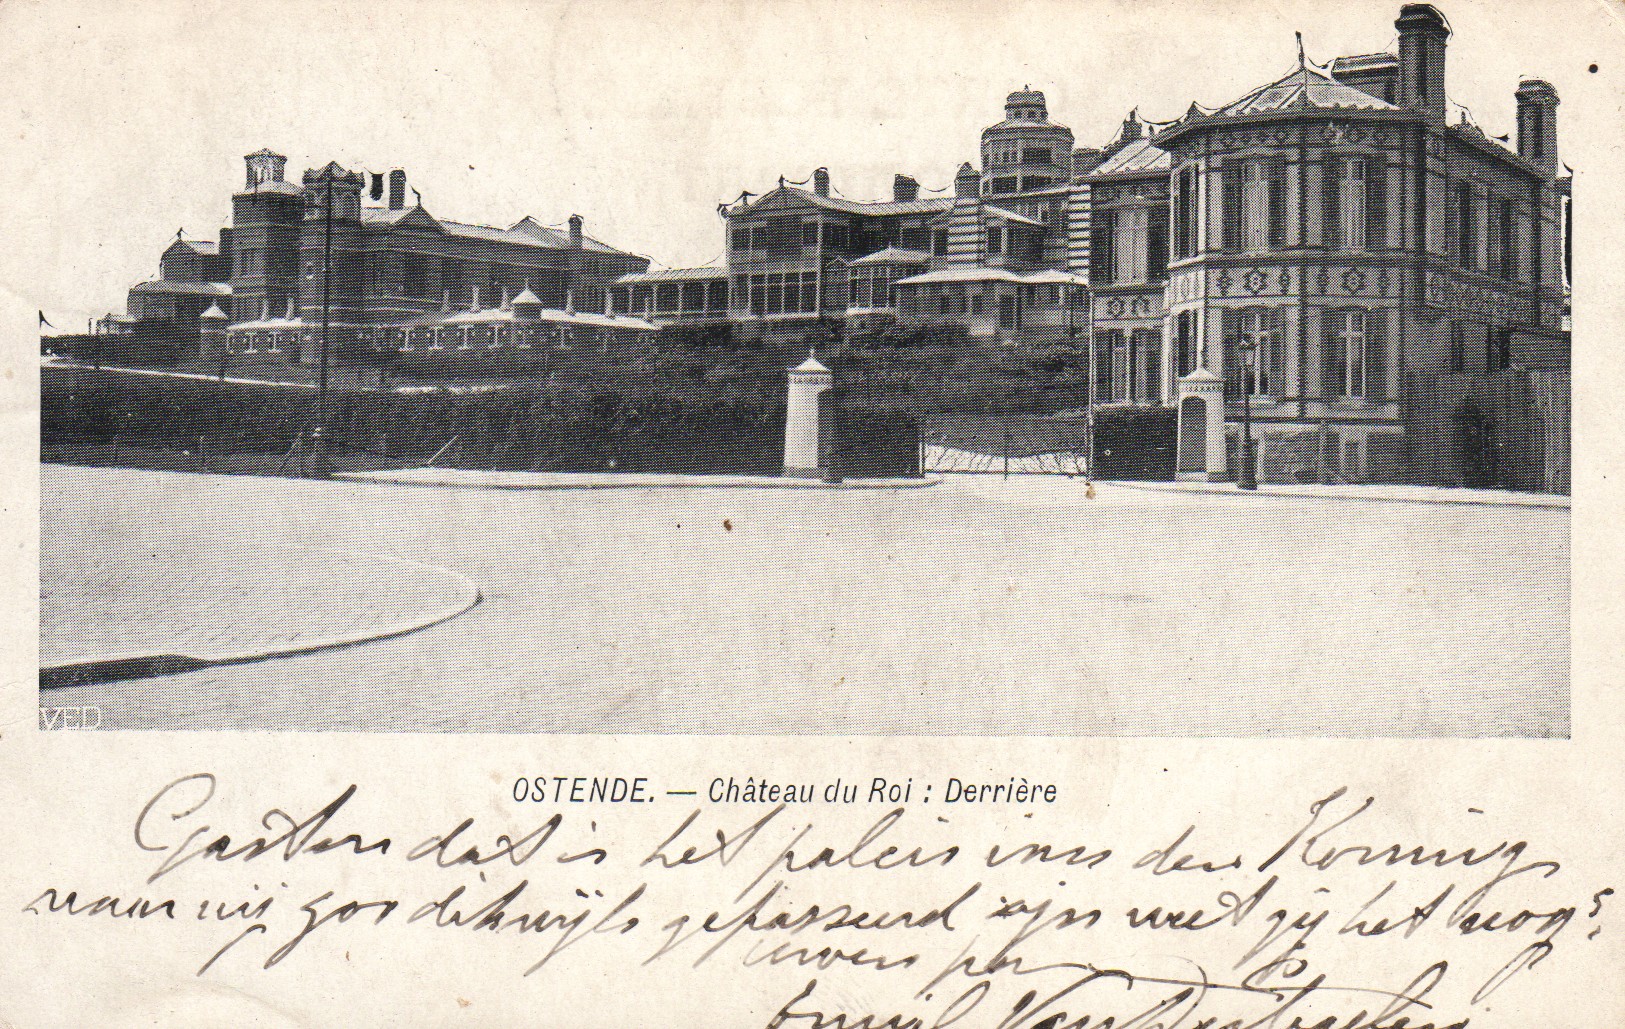 VED
OSTENDE. — Château du Roi : Derrière
Gaston dat is het paleis van den Koning
waar wij zoo dikwijls gepasseerd zijn weet gij het nog?
uwen pa
Emiel Van